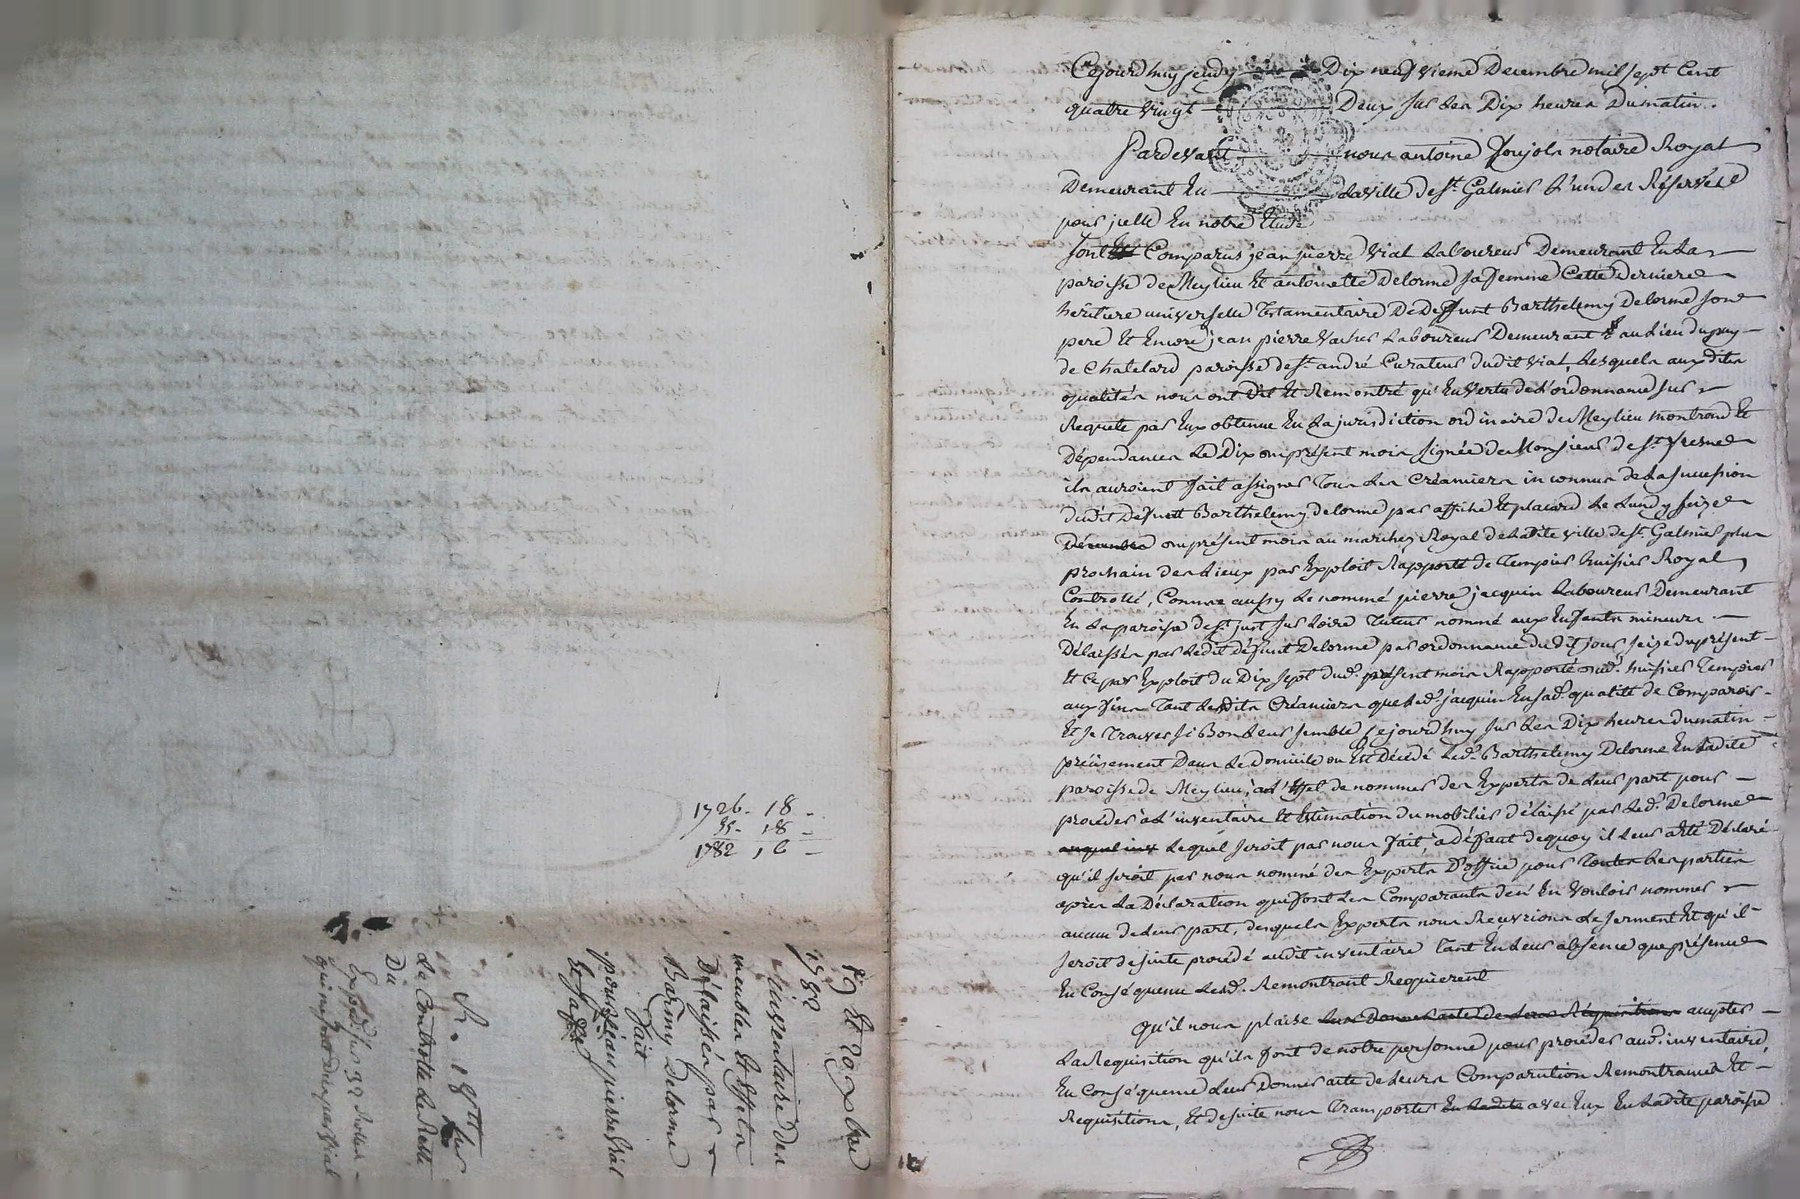 1726 - 18 -
55 - 18 -
1782 16 -
19 et 20 xbre
1782
inventaire des
meubles et effets
Délaissés par
Barmy Delorme
fait
pour jean pierre vial
et sa fe
R. 18tt sur
Le Controlle Le Reste
Du
Expedié sur 32 Rolles
Cejourdhuy jeudy Dix neuf vieme Decembre mil sept Cent
quatre vingt Deux sur les Dix heures Dumatin.
Pardevant nous antoine Poujols notaire Royal
Demeurant En Laville de st. Galmier L'un des Réservés
pour jcelle En notre Etude
sont Comparus jean pierre vial Laboureur Demeurant En La
paroisse de Meylieu Et antoinette Delorme sa femme Cette Derniere
heritiere universelle Testamentaire De Deffunt Barthelemy Delorme son
pere Et Encore jean pierre Vacher Laboureur Demeurant au Lieu dupuy
de Chatelard paroisse de st. andré Curateur dudit vial, Lesquels auxdites
qualités nous ont Dit Et Remontré qu'En Vertu de L'ordonnance sur
Requete par Eux obtenue En La jurisdiction ordinaire de Meylieu montrond Et
Dépendances Le Dix om présent mois signée de Monsieur de st.
ils auroient fait assigner Tous Les Créanciers inconnus de La succession
dudit Défunt Barthelemy delorme par affiche Et placard Le Lundy seize
Décembre om présent mois au marchez Royal de Ladite ville de st. Galmier plus
prochain des Lieux par Exploit Rapporté de Tempier huissier Royal
Controllé, Comme aussy Le nommé pierre jacquin Laboureur Demeurant
En La paroisse de st. just sur Loire Tuteur nommé aux Enfants mineurs
Délaissés par Ledit défunt Delorme par ordonnance dudit jour seize du présent
Et ce par Exploit du Dix sept dud. présent mois Rapporté dud. huissier Tempier
aux fins Tant Lesdits Créanciers que Led. jacquin En sad. qualité de Comparoir
Et se Trouver si Bon Leur semble Cejourdhuy sur Les Dix heures dumatin
précisement Dans Le domicile ou Est Décédé Led. Barthelemy Delorme En Ladite
paroisse de Meylieu, à L'Effet de nommer des Experts de Leur part pour
procéder à L'inventaire Et Estimation du mobilier délaissé par Led. Delorme
Lequel seroit par nous fait à Défaut dequoy il Leur a été Déclaré
qu'il seroit par nous nommé des Experts D'office pour Toutes Les parties
après La Déclaration que font Les Comparants de n'En Vouloir nommer
aucun de Leur part, desquels Experts nous Recevrions Le serment Et qu'il
seroit de suite procédé audit inventaire Tant En Leur absence que présence
En Conséquence Lesd. Remontrant Requierent
qu'il nous plaise Leur Donner acte de Leurs Réquisitions accepter
La Requisition qu'ils font de notre personne pour procéder aud. inventaire,
En Conséquence Leur Donner acte de Leurs Comparution Remontrance Et
Requisitions, Et de suite nous Transporter En Ladite avec Eux En Ladite paroisse